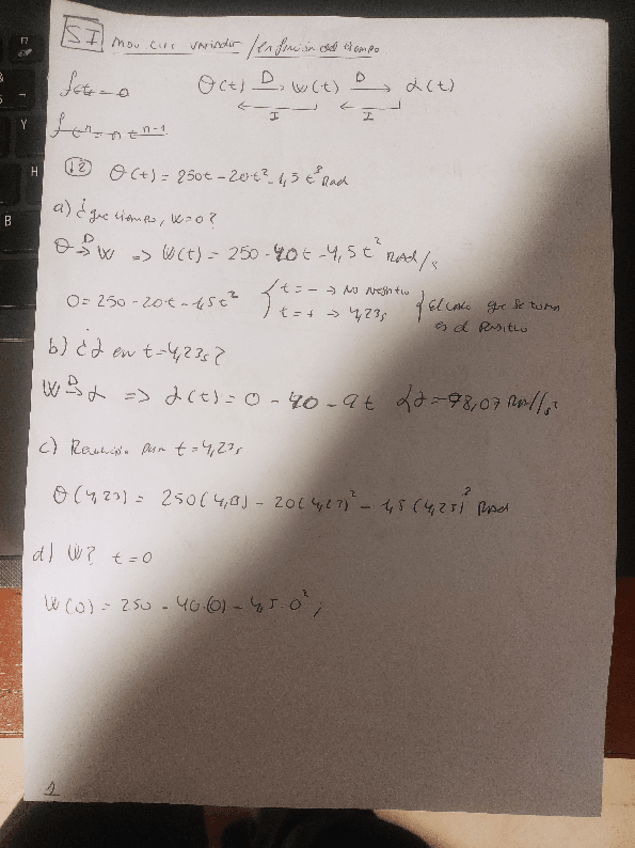 SI Mov circ variados / en funcion del tiempo
f cte = 0 θ(t) D→ w(t) D→ α(t)
I I
f t^n = n t^(n-1)
12 θ(t) = 250t - 20t² - 1,5 t³ Rad
a) ¿que tiempo, w=0?
θ D→ w => W(t) = 250 - 40t - 4,5t² RAD/s
0 = 250 - 20t - 1,5t² t = - → No negativo
t = + → 4,23s
El caso que se toma
es el Positivo
b) ¿α en t=4,23s?
W D→ α => α(t) = 0 - 40 - 9t α = -78,07 Rad/s²
c) t = 4,23s
θ(4,23) = 250(4,23) - 20(4,23)² - 1,5(4,23)³ Rad
d) W? t = 0
W(0) = 250 - 40.(0) - 4,5.0² ;
1